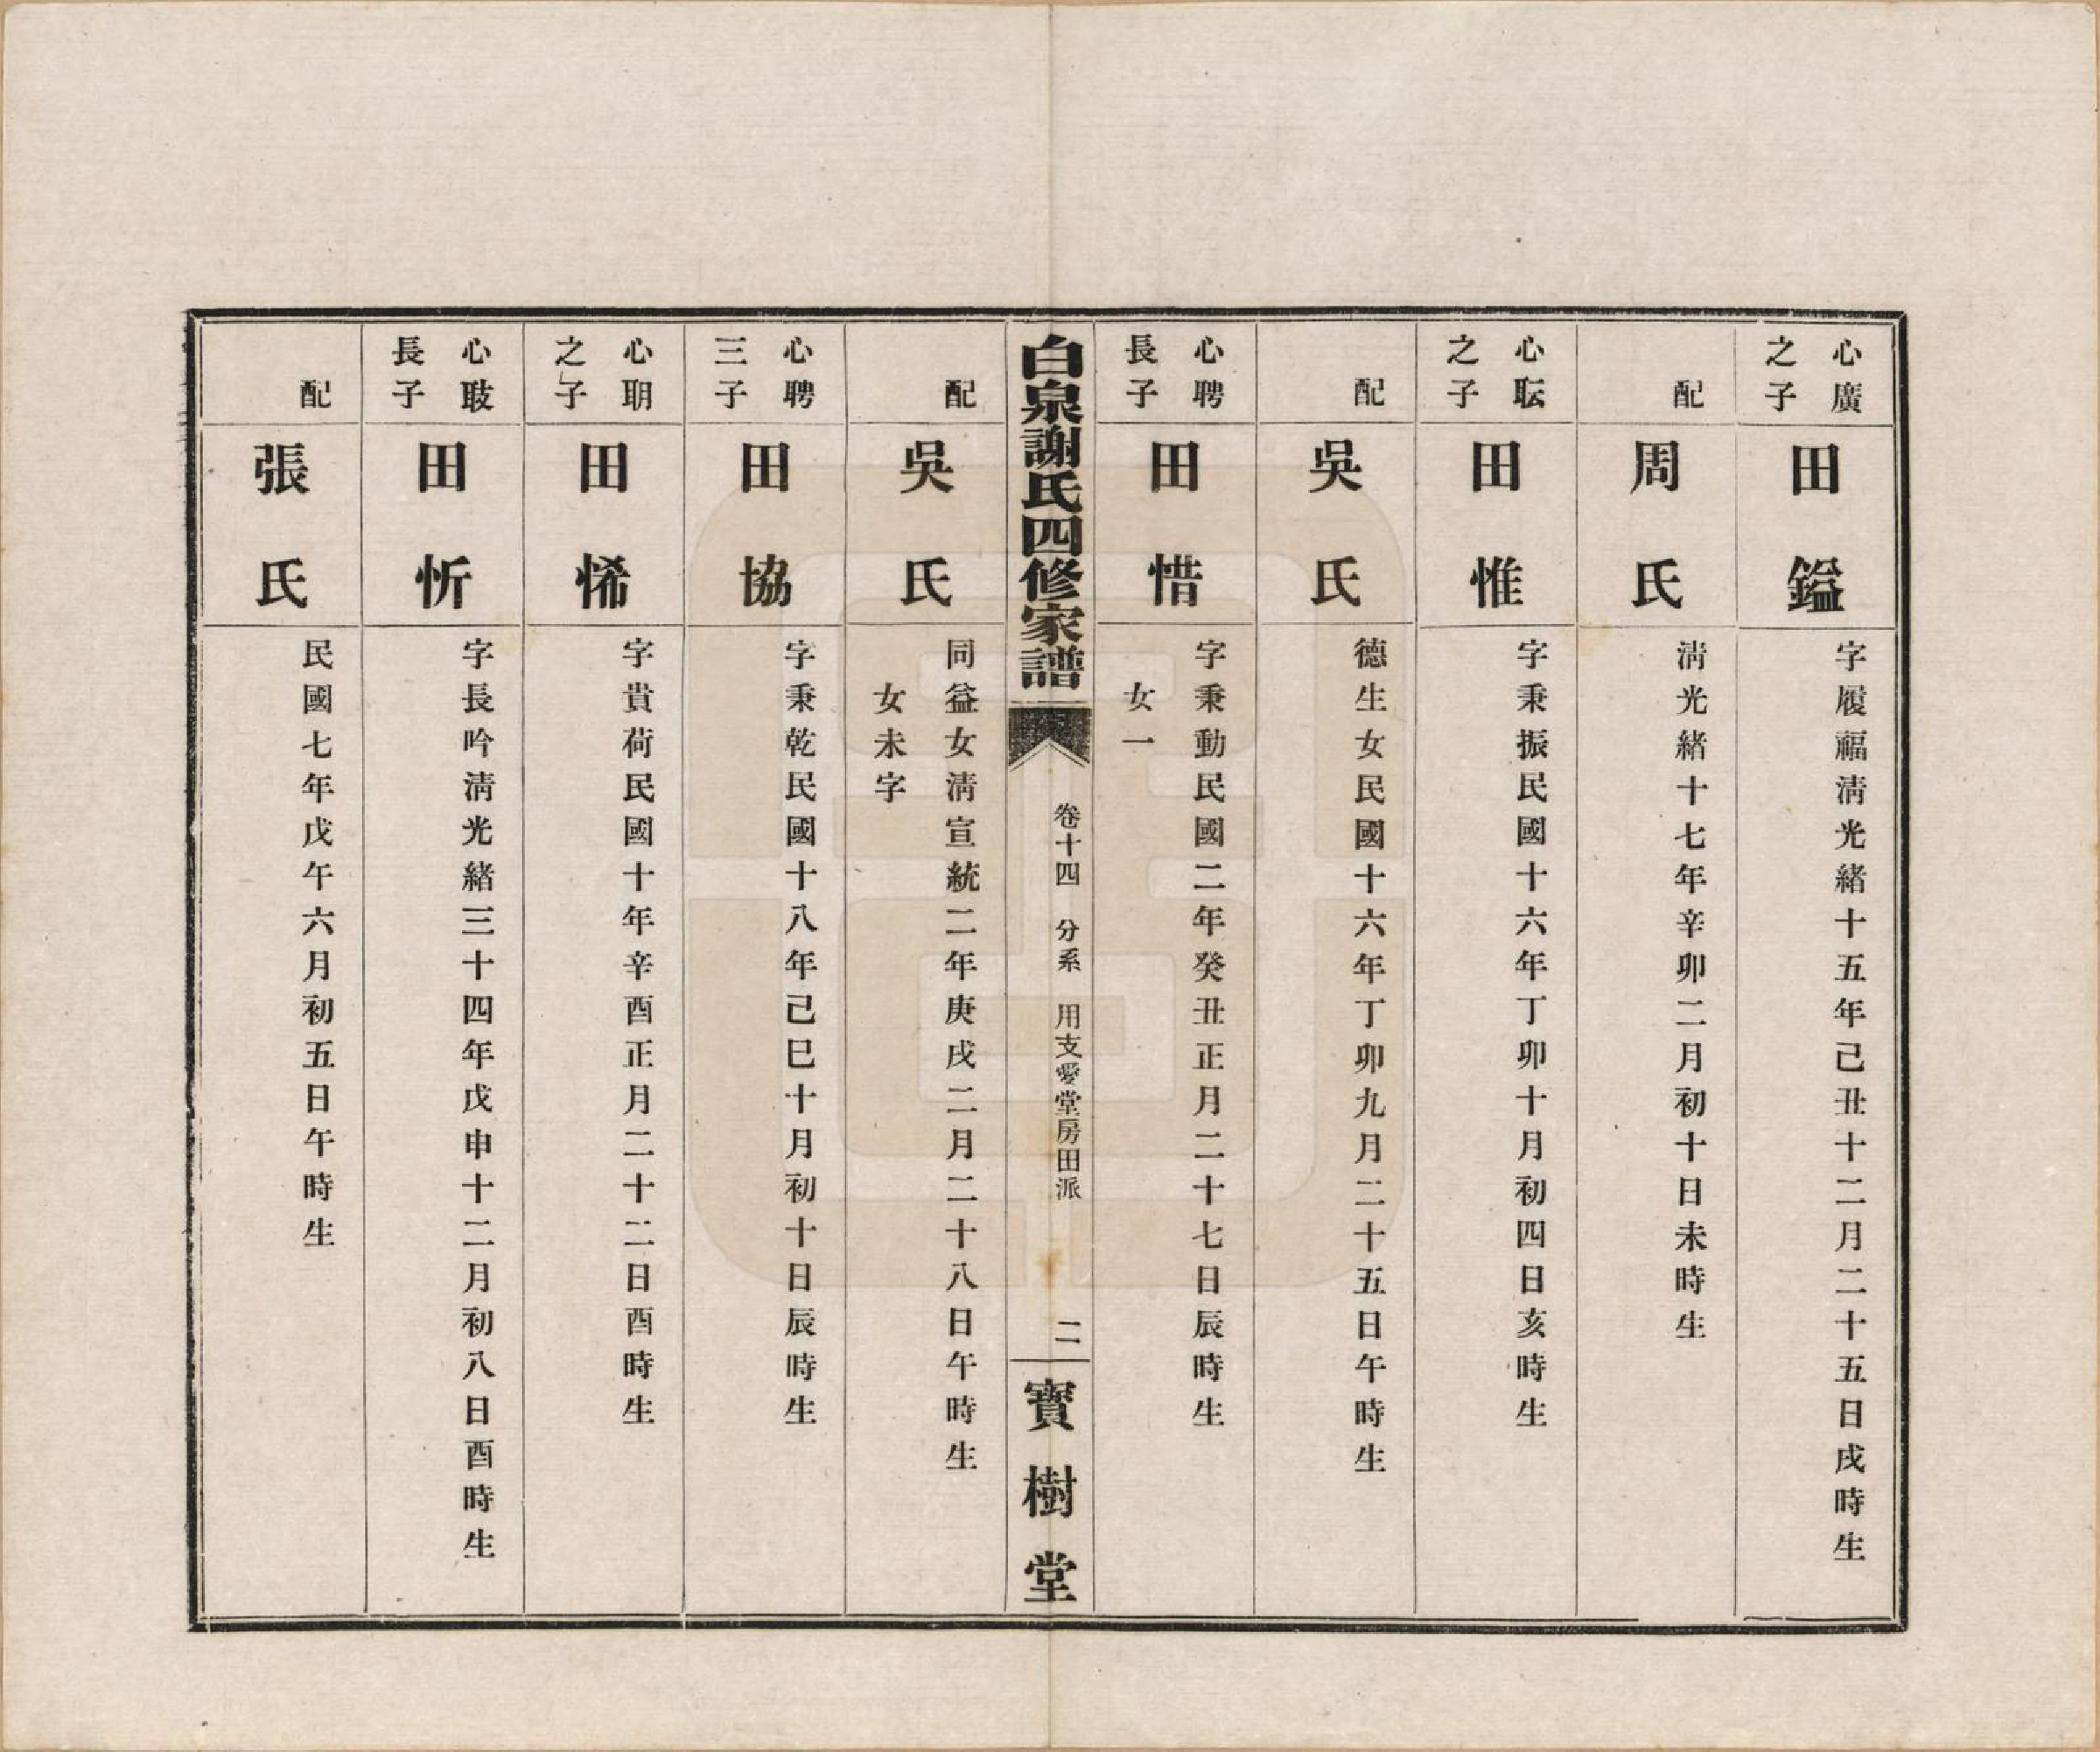 心廣
之子
田鎰
字履福淸光緒十五年己丑十二月二十五日戌時生
配
周氏
淸光緒十七年辛卯二月初十日未時生
心耺
之子
田惟
字秉振民國十六年丁卯十月初四日亥時生
配
吳氏
德生女民國十六年丁卯九月二十五日午時生
心聘
長子
田惜
字秉動民國二年癸丑正月二十七日辰時生
女一
白泉謝氏四修家譜
卷十四 分系 用支愛堂房田派 二
寶樹堂
配
吳氏
同益女淸宣統二年庚戌二月二十八日午時生
女未字
心聘
三子
田恊
字秉乾民國十八年己巳十月初十日辰時生
心耼
之子
田悕
字貴荷民國十年辛酉正月二十二日酉時生
心聀
長子
田忻
字長吟淸光緒三十四年戊申十二月初八日酉時生
配
張氏
民國七年戊午六月初五日午時生